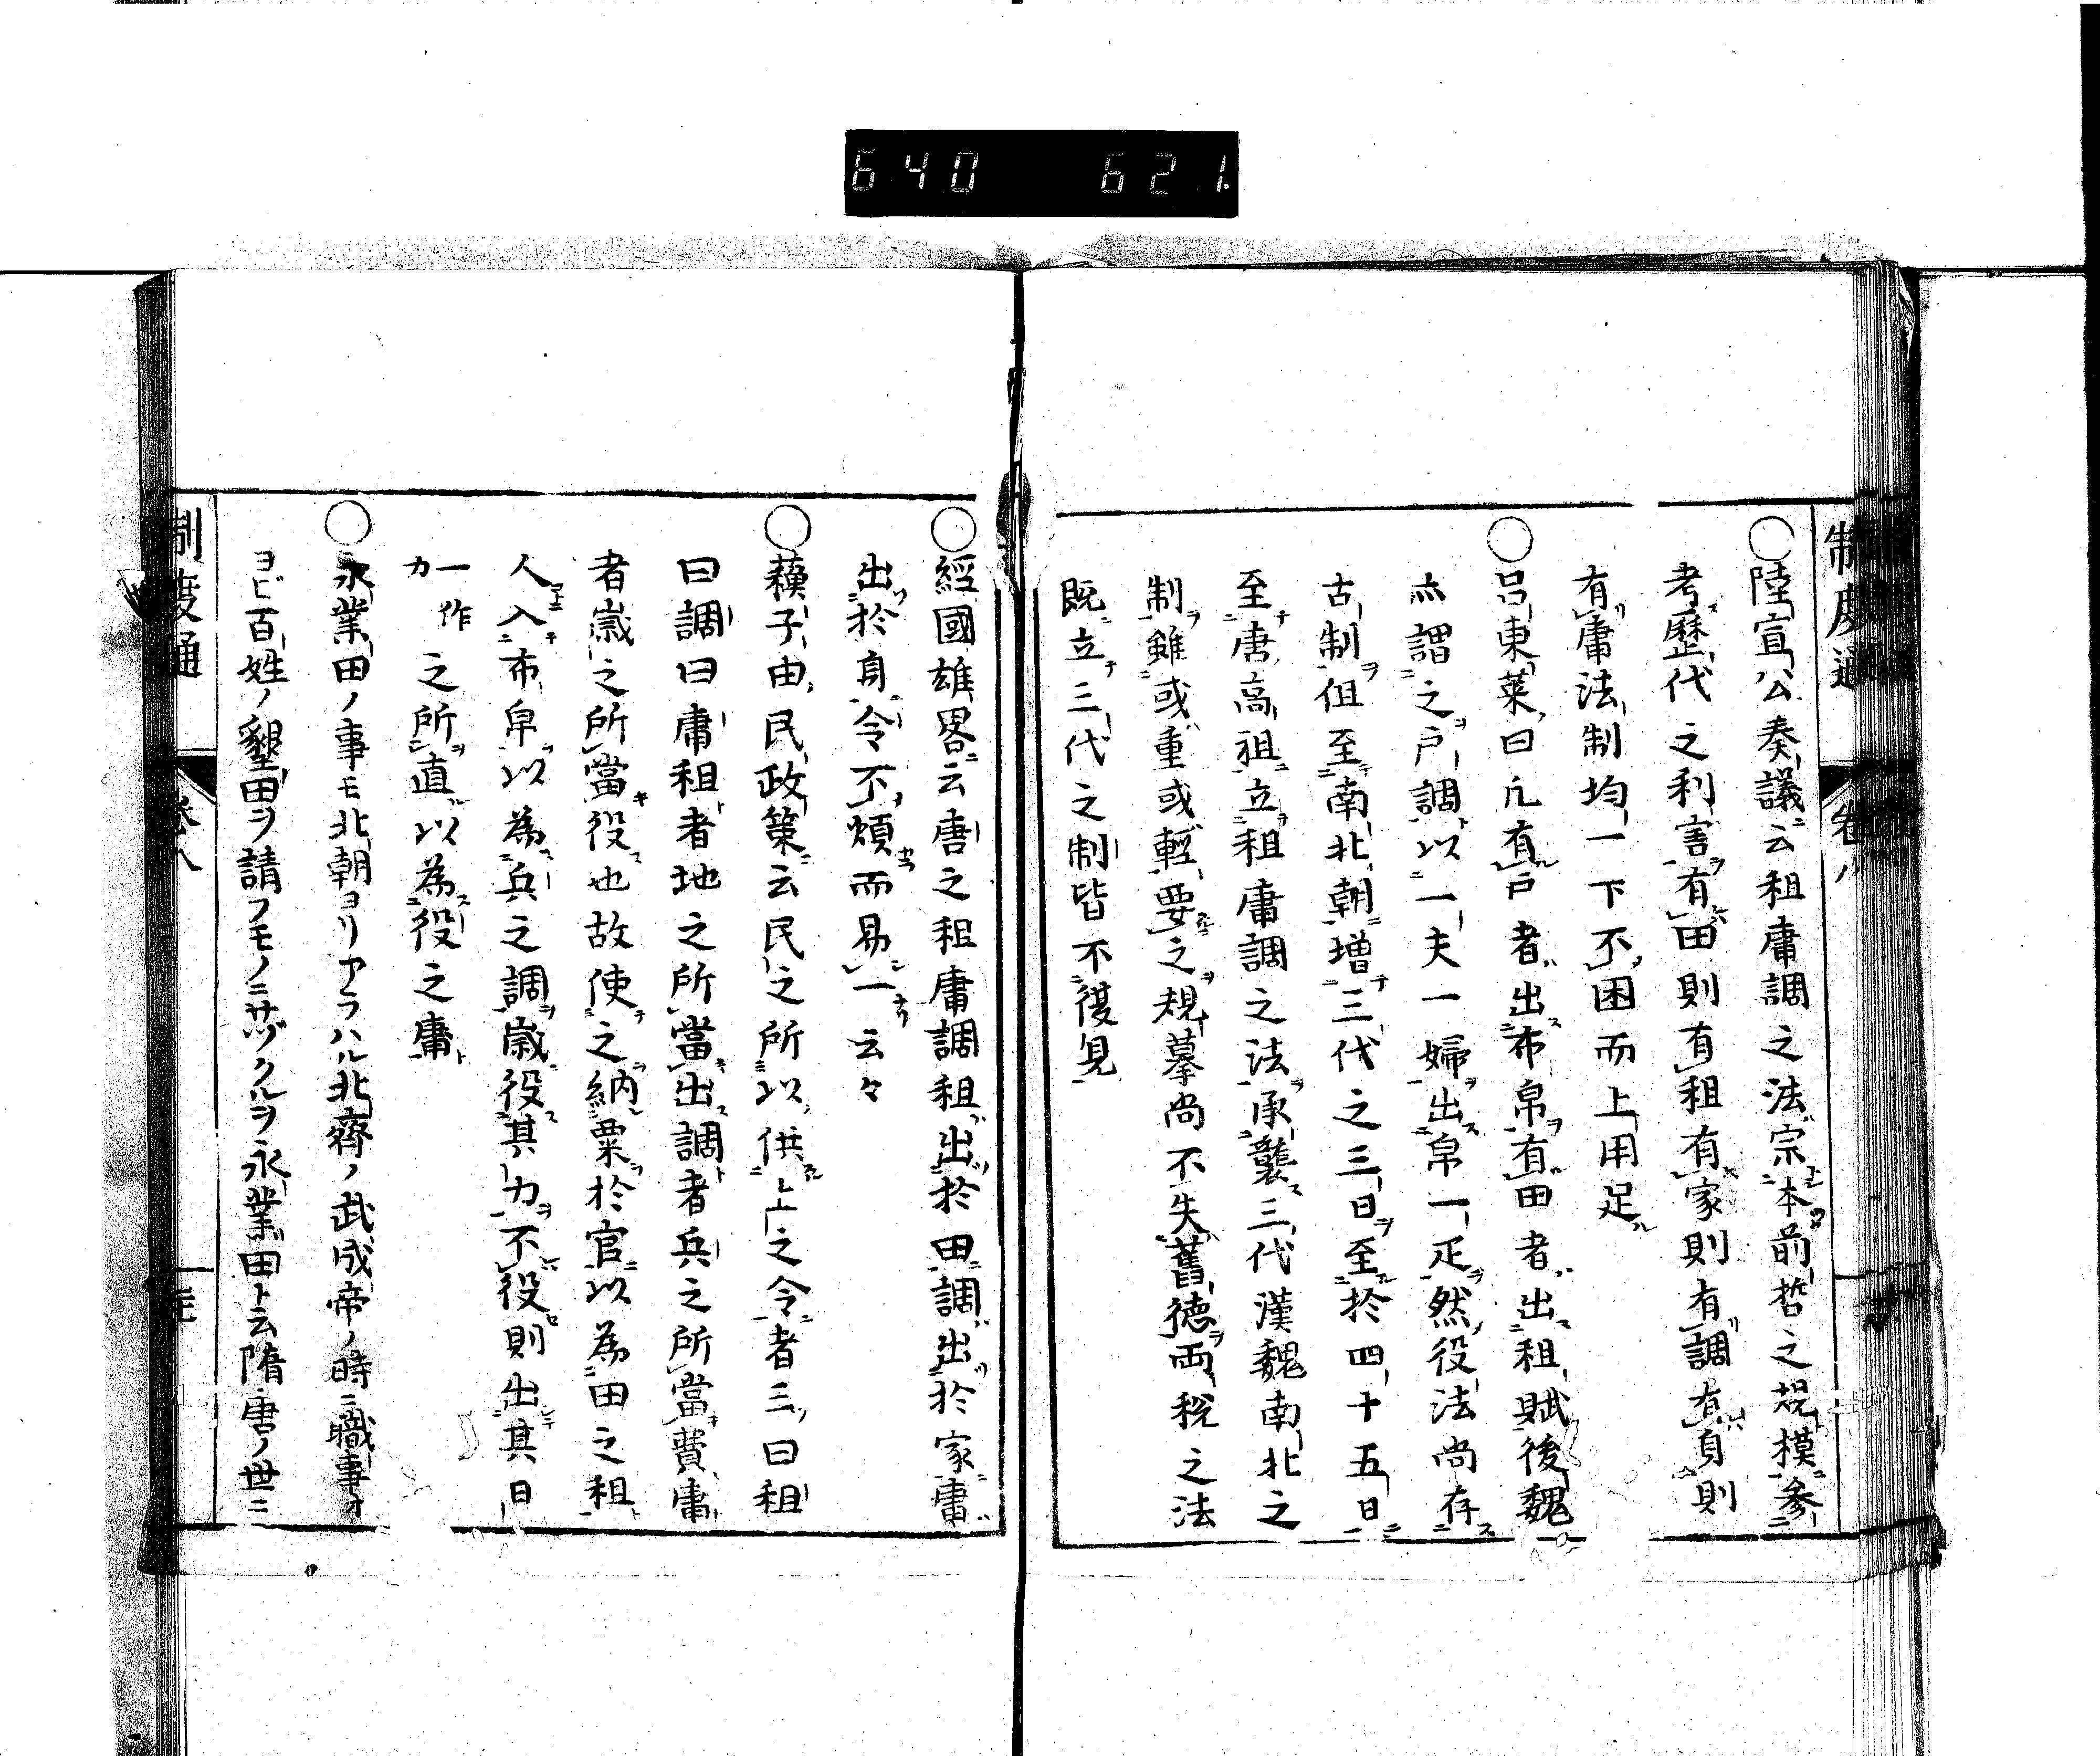 640 621.
制度通 卷八
○陸宣公奏議云租庸調之法宗本前哲之規模參
考歷代之利害有田則有租有家則有調有身則
有庸法制均一下不困而上用足
○呂東萊曰凡有戸者出布帛有田者出租賦後魏
亦謂之戸調以一夫一婦出帛一疋然役法尚存
古制但至南北朝增三代之三日至於四十五日
至唐高祖立租庸調之法承襲三代漢魏南北之
制雖或重或輕要之規摹尚不失舊德兩稅之法
既立三代之制皆不復見
○經國雄畧云唐之租庸調租出於田調出於家庸
出於身令不煩而易一云々
○蘓子由民政策云民之所以供上之令者三曰租
曰調曰庸租者地之所當出調者兵之所當費庸
者歲之所當役也故使之納粟於官以為田之租
人入布帛以為兵之調歲役其力不役則出其日
一作力之所直以為役之庸
○永業田ノ事モ北朝ヨリアラハル北齊ノ武成帝ノ時ニ職事オ
ヨビ百姓ノ墾田ヲ請フモノニサヅクルヲ永業田ト云隋唐ノ世ニ
制度通 卷八